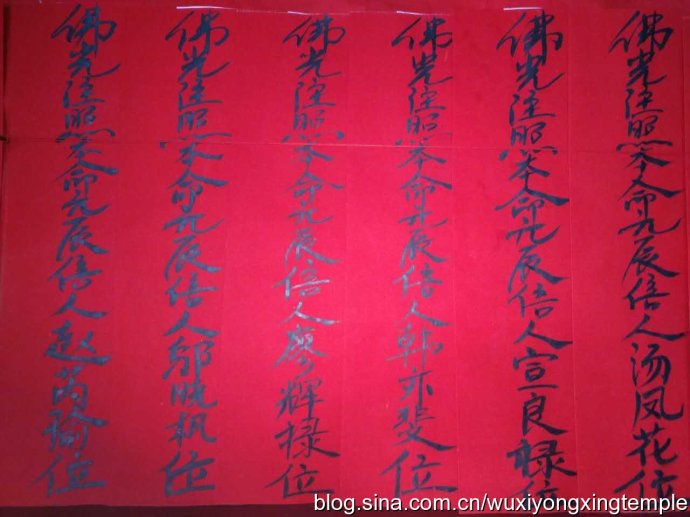 佛光注照本命元辰信人汤凤花位
佛光注照本命元辰信人宣良禄位
佛光注照本命元辰信人韩亦斐位
佛光注照本命元辰信人廖辉禄位
佛光注照本命元辰信人邬晓枫位
佛光注照本命元辰信人赵芮瑜位
blog.sina.com.cn/wuxiyongxingtemple